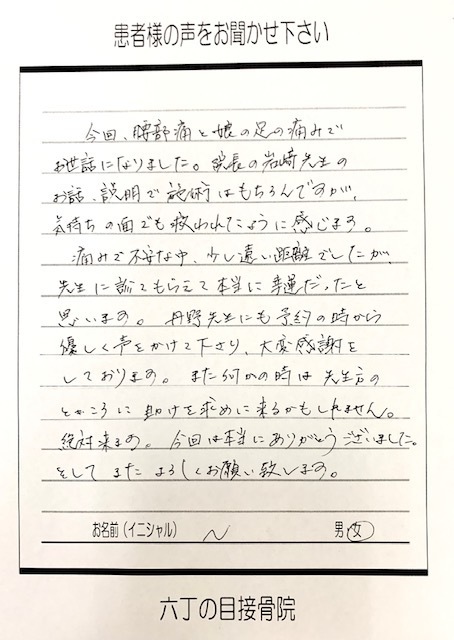 患者様の声をお聞かせ下さい
今回、腰部痛と娘の足の痛みで
お世話になりました。院長の岩崎先生の
お話、説明で施術はもちろんですが、
気持ちの面でも救われたように感じます。
痛みで不安な中、少し遠い距離でしたが、
先生に診てもらえて本当に幸運だったと
思います。丹野先生にも予約の時から
優しく声をかけて下さり、大変感謝を
しております。また何かの時は先生方の
ところに助けを求めに来るかもしれません。
絶対来ます。今回は本当にありがとうございました。
そしてまたよろしくお願い致します。
お名前（イニシャル） N 男・女
六丁の目接骨院